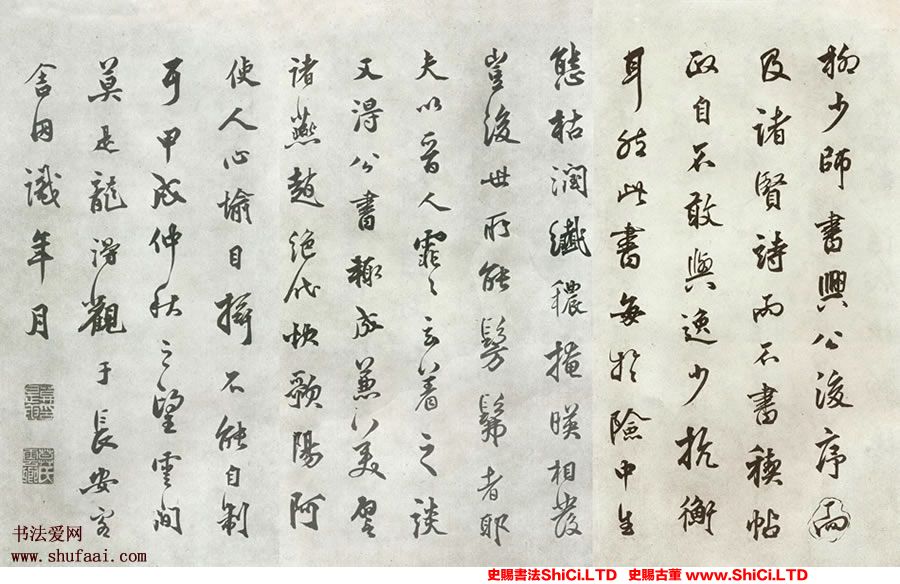 柳少師書興公後序
及諸賢詩而不書禊帖
政自不敢與逸少抗衡
耳然此書每於險中生
態枯潤纖穠掩暎相發
豈後世所能髣髴者耶
夫以晉人霏々玄着之談
又得公書輙成兼美譬
諸燕趙絕代快歌陽阿
使人心愉目搖不能自制
耳甲戌仲秋之望雲間
莫是龍得觀于長安客
舍因識年月
书法爱网
www.shufaai.com
史賜書法ShiCi.LTD 史賜古董 www.ShiCi.LTD